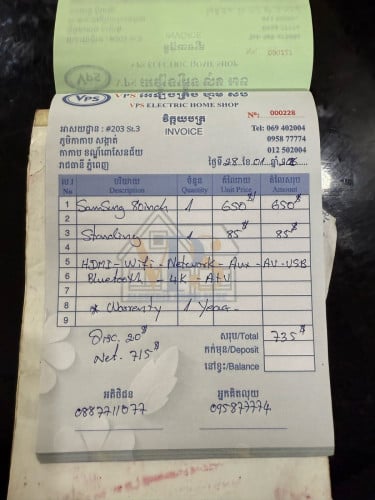 VPS វីភីអេស អេឡិចត្រិច ហូម សប
VPS ELECTRIC HOME SHOP
វិក្កយបត្រ
INVOICE
Nº: 000228
អាសយដ្ឋាន : #203 St.3
ភូមិកាកាប សង្កាត់
កាកាប ខណ្ឌពោធិ៍សែនជ័យ
រាជធានី ភ្នំពេញ
Tel: 069 402004
0958 77774
012 502004
ថ្ងៃទី 28 ខែ 01 ឆ្នាំ
ល.រ បរិយាយ ចំនួន តំលៃរាយ តំលៃសរុប
No Description Quantity Unit Price Amount
1 SamSung 80inch 1 650$ 650$
2
3 Standing 1 85$ 85$
4
5 HDMI - Wifi - Network - Aux - AV - USB
6 Bluetooth - 4K - ATV
7
8 * Warranty 1 Year
9
Disc. 20$
Net. 715$
សរុប/Total 735$
កក់មុន/Deposit
នៅខ្វះ/Balance
អតិថិជន
0887711077
អ្នកគិតលុយ
095877774